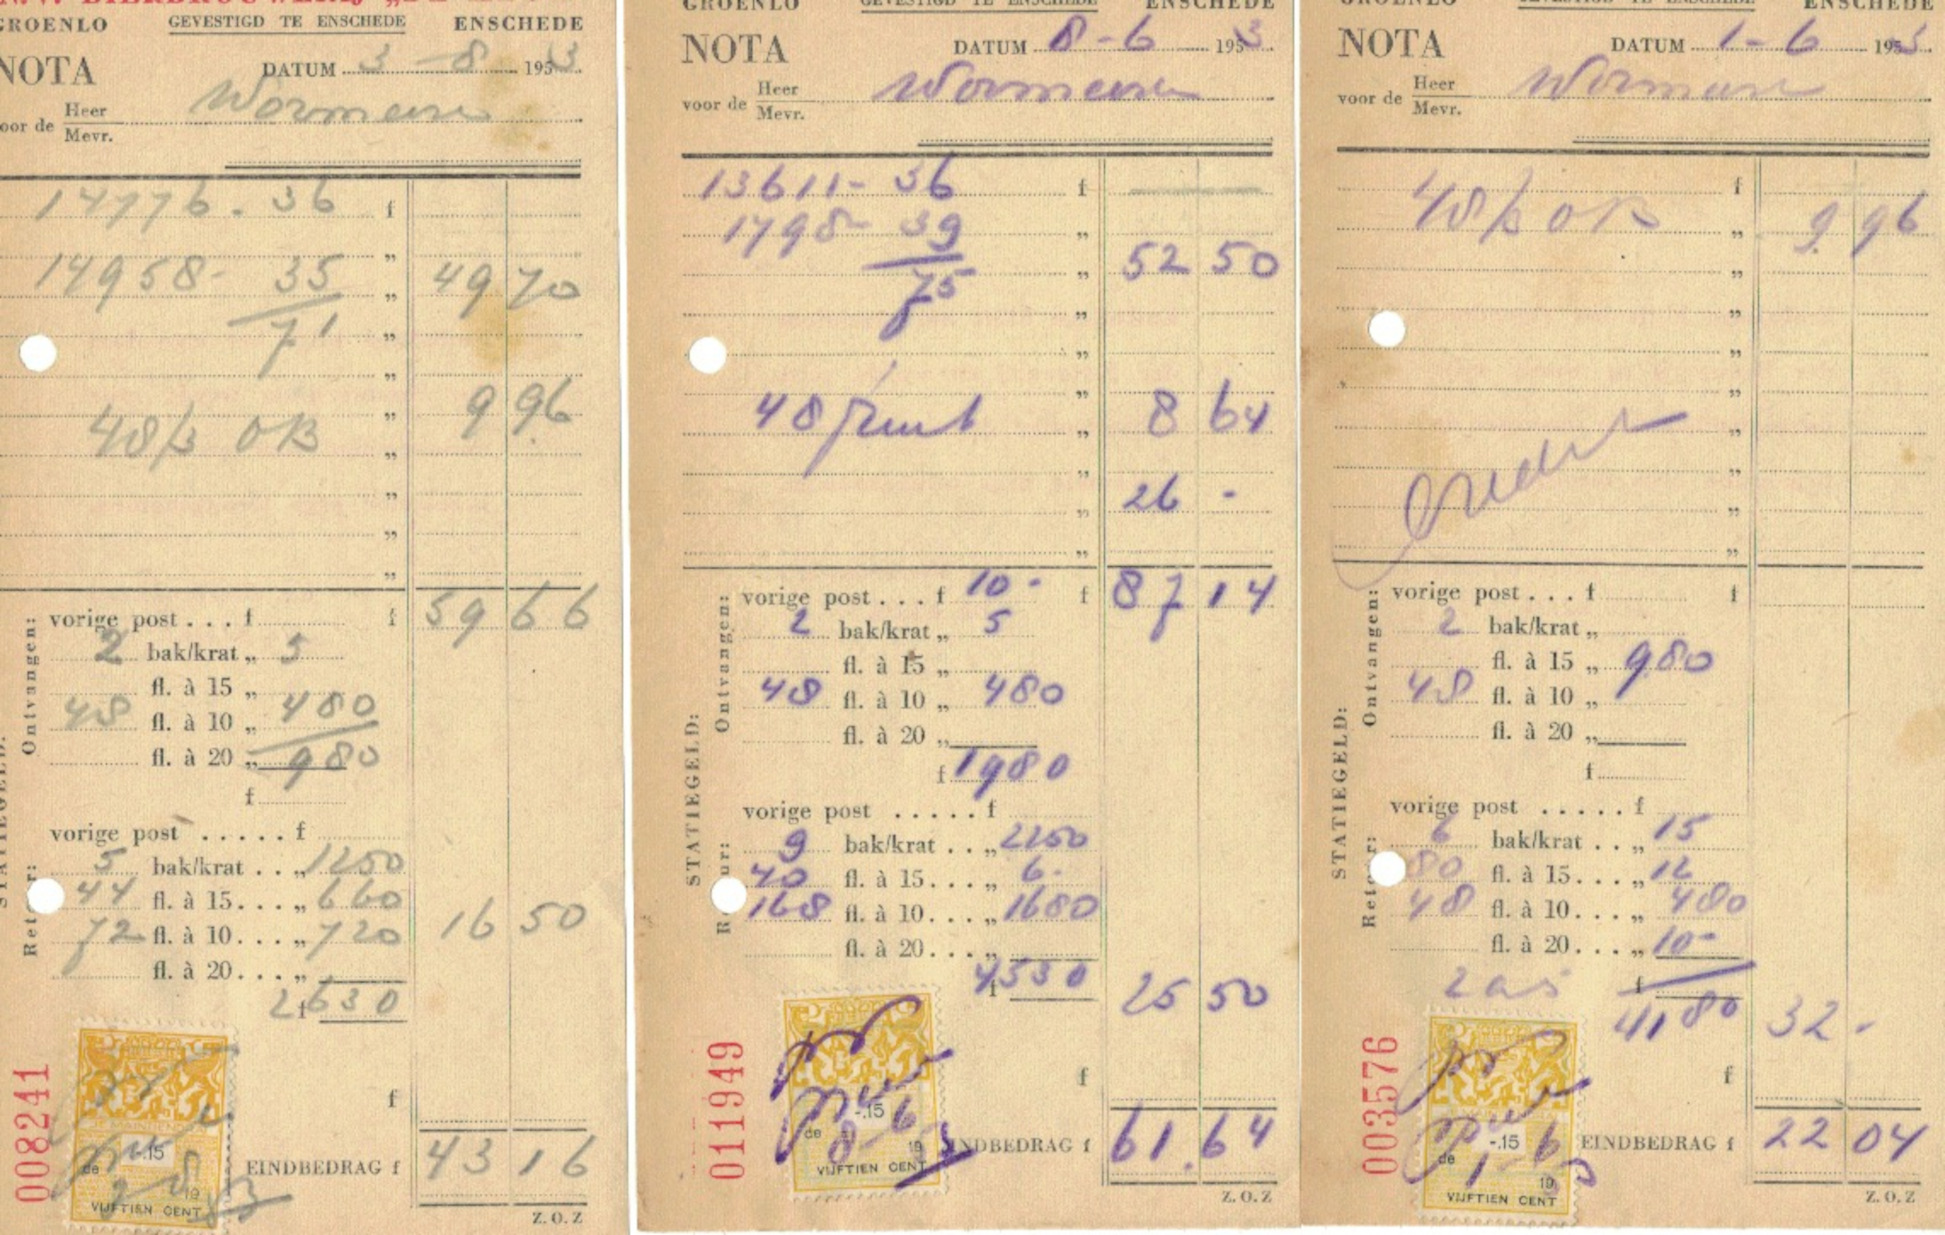 GROENLO GEVESTIGD TE ENSCHEDE ENSCHEDE
NOTA DATUM 3 - 8 1953
voor de Heer
Mevr.
Wormeese
14776 . 36 f
14958 - 35 „ 49 70
71
48 fl OB „ 9 96
STATIEGELD:
Ontvangen:
vorige post . . . f f 59 66
2 bak/krat „ 5
fl. à 15 „
48 fl. à 10 „ 480
fl. à 20 „ 980
f
Retour:
vorige post . . . . . f
5 bak/krat . . „ 1250
44 fl. à 15. . . „ 660
72 fl. à 10. . . „ 720 16 50
fl. à 20. . . „
f 2630
008241
-.15
de 19
VIJFTIEN CENT
3 8 53
f
EINDBEDRAG f 43 16
Z.O.Z
GROENLO GEVESTIGD TE ENSCHEDE ENSCHEDE
NOTA DATUM 8 - 6 1953
voor de Heer
Mevr.
13611 - 36 f
1798 - 39 „
75 „ 52 50
48 „ 8 64
„ 26 -
STATIEGELD:
Ontvangen:
vorige post . . . f 10 - f 87 14
2 bak/krat „ 5
fl. à 15 „
48 fl. à 10 „ 480
fl. à 20 „
f 1980
Retour:
vorige post . . . . . f
9 bak/krat . . „ 2250
40 fl. à 15. . . „ 6 -
168 fl. à 10. . . „ 1680
fl. à 20. . . „
f 4530 25 50
011949
-.15
de 8 - 6 19
VIJFTIEN CENT
f
EINDBEDRAG f 61.64
Z.O.Z
GROENLO GEVESTIGD TE ENSCHEDE ENSCHEDE
NOTA DATUM 1 - 6 1953
voor de Heer
Mevr.
48 fl OB f 9 96
Credit
STATIEGELD:
Ontvangen:
vorige post . . . f f
2 bak/krat „
fl. à 15 „ 980
48 fl. à 10 „
fl. à 20 „
f
Retour:
vorige post . . . . . f
6 bak/krat . . „ 15
80 fl. à 15. . . „ 12
48 fl. à 10. . . „ 480
fl. à 20. . . „ 10 -
f 41 80 32 -
003576
-.15
de 1 - 6 19 53
VIJFTIEN CENT
f
EINDBEDRAG f 22 04
Z.O.Z